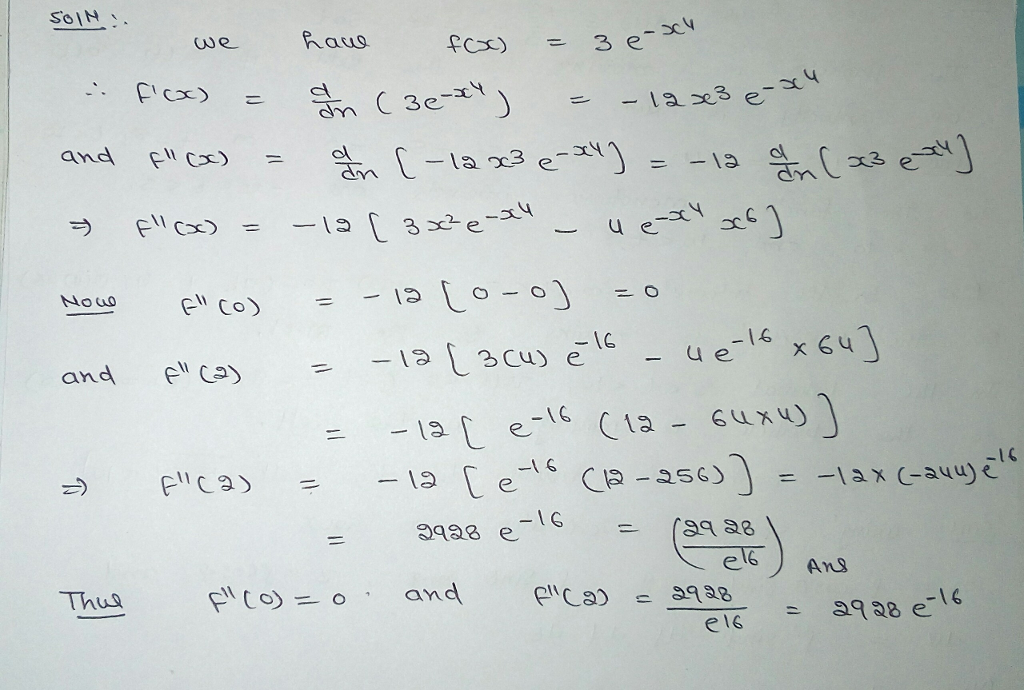 Soln :.
we have f(x) = 3 e^{-x^4}
∴ f'(x) = d/dn (3e^{-x^4}) = -12 x^3 e^{-x^4}
and f''(x) = d/dn [-12 x^3 e^{-x^4}] = -12 d/dn [x^3 e^{-x^4}]
⇒ f''(x) = -12 [3x^2 e^{-x^4} - 4 e^{-x^4} x^6]
Now f''(0) = -12 [0-0] = 0
and f''(2) = -12 [3(4) e^{-16} - 4e^{-16} × 64]
= -12 [e^{-16} (12 - 64×4)]
⇒ f''(2) = -12 [e^{-16} (12-256)] = -12× (-244) e^{-16}
= 2928 e^{-16} = (2928/e^{16}) Ans
Thus f''(0) = 0. and f''(2) = 2928/e^{16} = 2928 e^{-16}